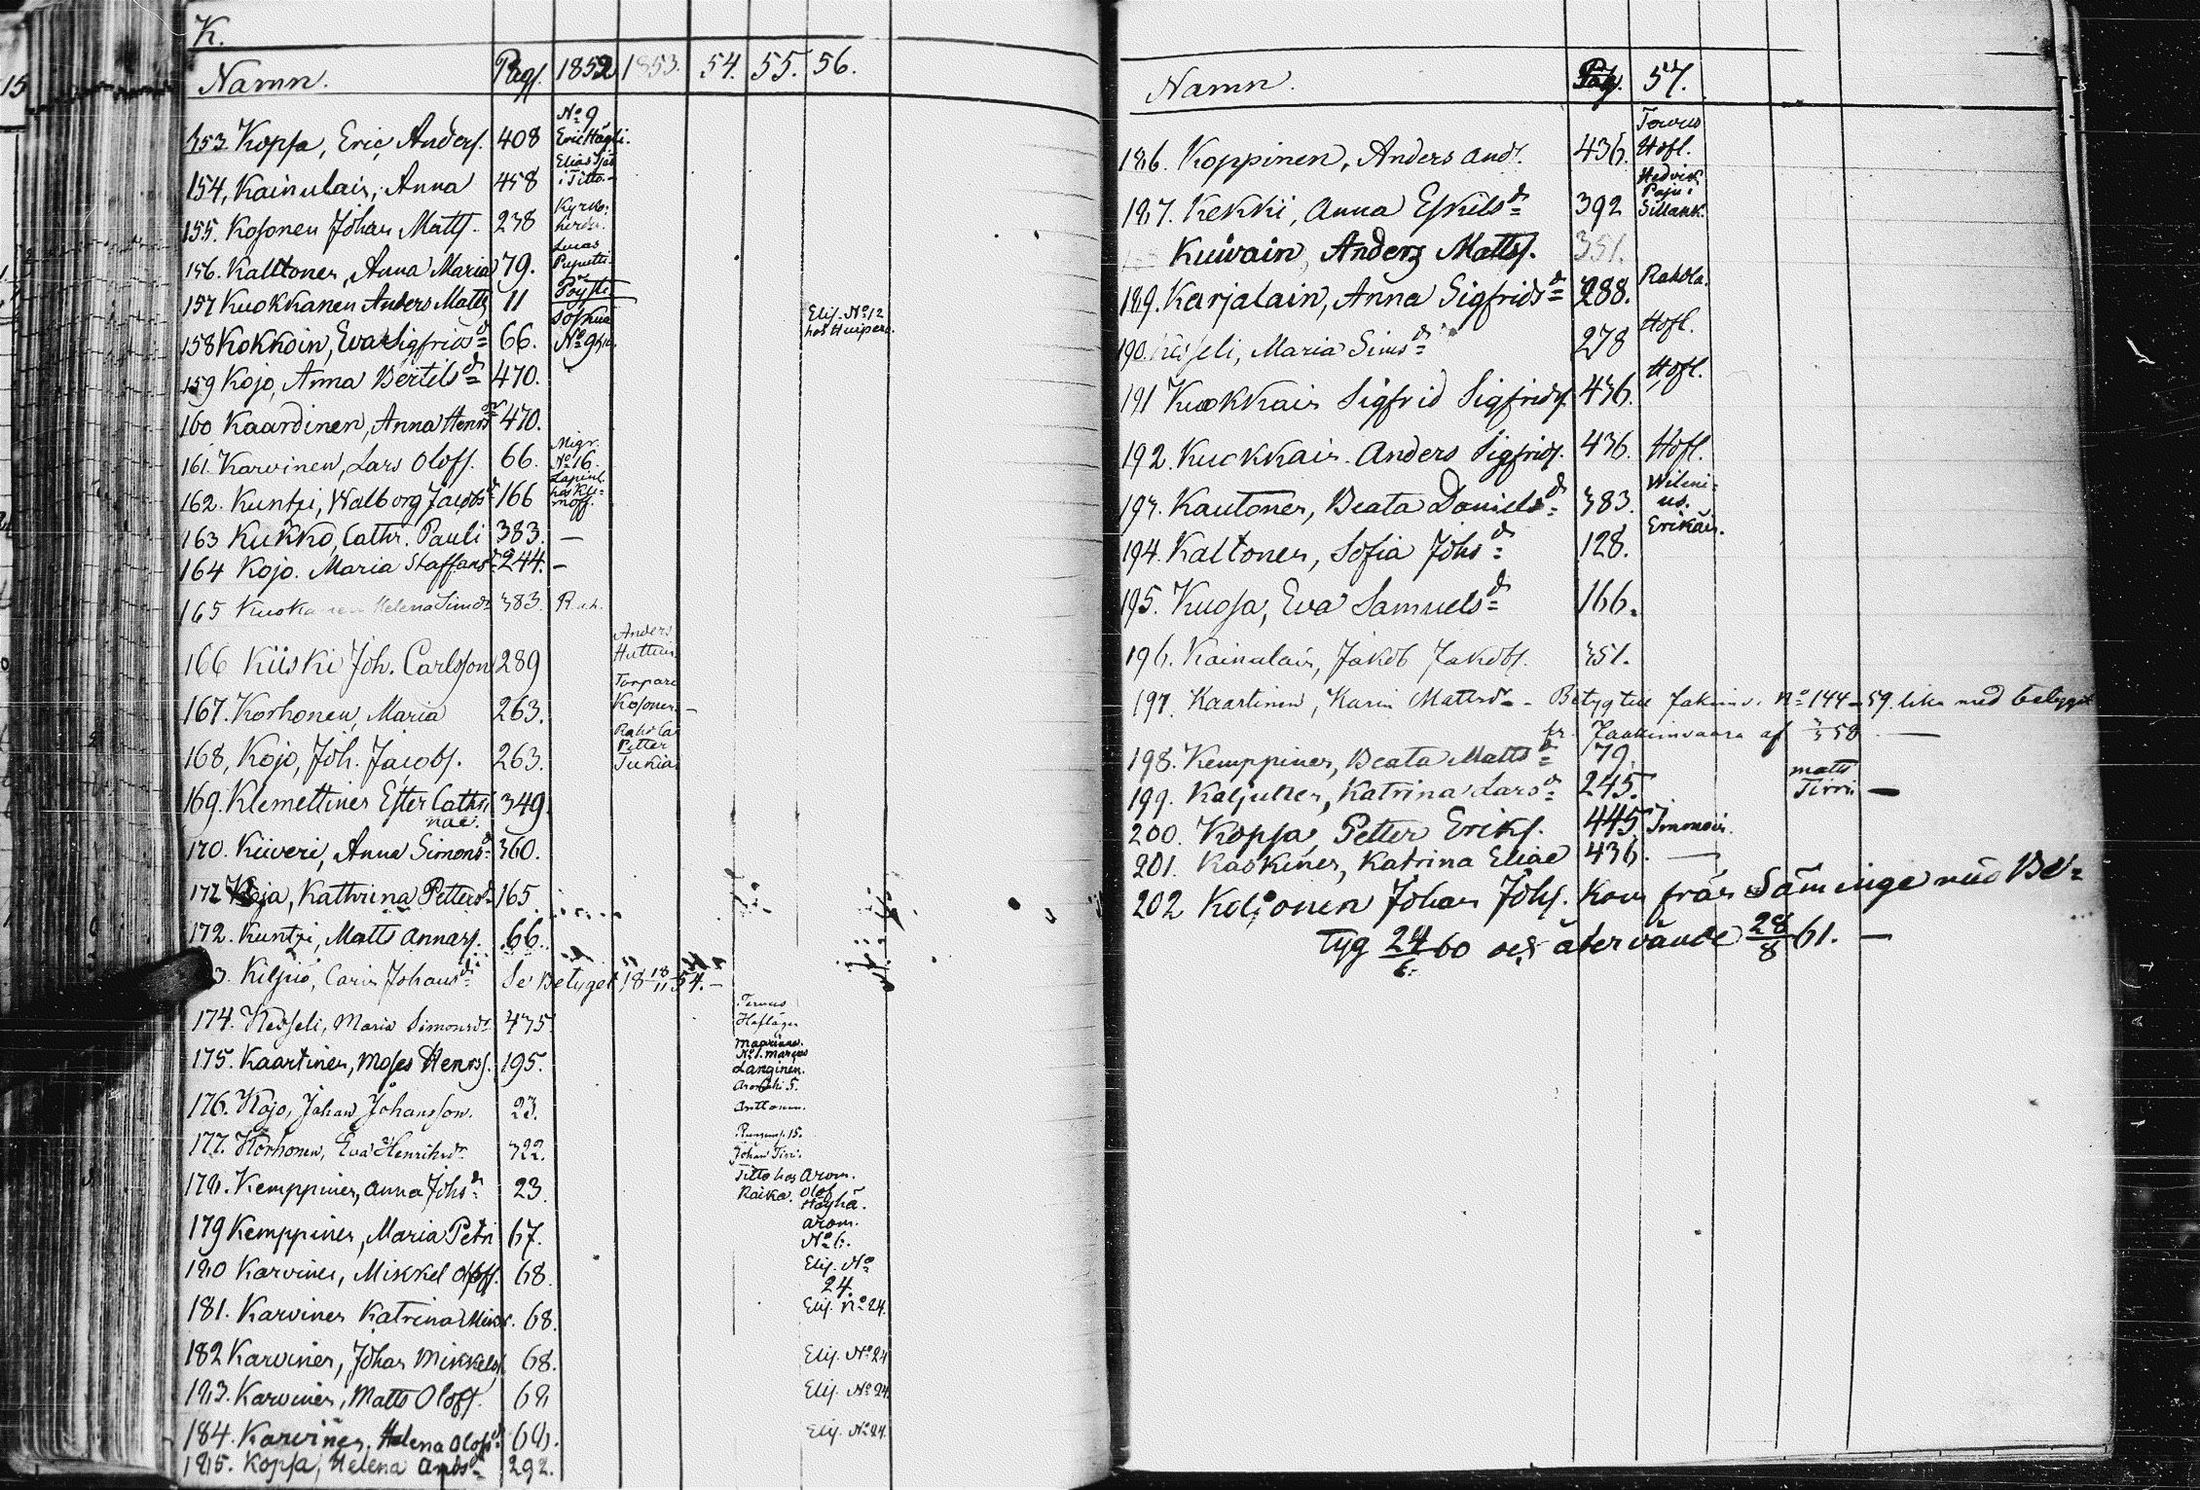 K.
Namn. Pag. 1852 1853. 54. 55. 56.
153. Kopsa, Eric Anders. 408 No 9 Eric Hägli.
154, Kainulain, Anna 458 Elias i Titto.
155. Kosonen Johan Matts. 238 Kyrko: herdn.
156. Kaltonen, Anna Maria 79. Lucas Puputti
157 Kuokkanen Anders Matts. 11 Pöysti
158 Kokkoin, Eva Sigfridsd= 66. Soskua No 9 Elis. No 12 hos Huipero.
159 Kojo, Anna Bertilsd= 470.
160 Kaardinen, Anna Henrsd= 470.
161. Karvinen, Lars Olofs. 66. Migr. No 16.
162. Kuntzi, Walborg Jacobsd= 166 Lapinl. hos Kli= moff.
163 Kukko, Cathr. Pauli 383. —
164 Kojo. Maria Staffansd= 244. —
165 Helena Simdr 383.
166 Kiiski Joh. Carlsson 289 Anders Huttuin
167. Korhonen, Maria 263. Torpare Kosonen. —
168, Kojo, Joh. Jacobs. 263. Petter Tukia
169. Klemettinen Ester Cathri nae. 349.
170. Kiiveri, Anna Simonsd= 360.
171 Koja, Kathrina Pettersd= 165
172. Kuntzi, Matts Annas. 66.
3. Kilpiö, Carin Johansd= Se Betyget 18 18/11 54. —
174. Keiseli, Maria Simonsdr 435 Tervus Hofläger
175. Kaartinen, Moses Henrs. 195. No 1. Marcus Langinen.
176. Kojo, Johan Johansson. 23. Anttonen.
177. Korhonen, Eva Henriksdr 322. 15. Johan Tiri.
178. Kemppinen, Anna Johsd= 23. Titto hos Raika. Arom. Olof Häyhä.
179 Kemppinen, Maria Petri 67. Arom. No 6.
180 Karvinen, Mikkel Olofs. 68. Elis. No 24.
181. Karvinen Katrina Mikk. 68. Elis. No 24.
182 Karvinen, Johan Mikkels. 68. Elis. No 24
183. Karvinen, Matts Olofs. 68 Elis. No 24
184. Karvinen. Helena Olofsd= 68. Elis. No 24.
185. Kopsa, Helena Andsd= 292.
Namn. Pag. 57.
186. Koppinen, Anders Ands. 436. Tervus Hofl.
187. Kekki, Anna Eskilsd= 392 Hedvik Paju i Sillank.
Kuivain, Anders Matts. 351.
189. Karjalain, Anna Sigfridsd= 288. Rahola.
190. Maria Simsd= 278 Hofl.
191 Kuokkain Sigfrid Sigfrids. 436. Hofl.
192. Kuokkain. Anders Sigfrids. 436. Hofl.
193. Kautonen, Beata Danielsd= 383. Wileni= us.
194. Kaltonen, Sofia Johsd= 128. Erikäin.
195. Kuosa, Eva Samuelsd= 166.
196. Kainulain, Jakob Jakobs. 351.
197. Kaartinen, Karin Mattsdr - Betyg till Jakimv. No 144 - 59. lika med betyget
fr. Jaakimvaara af 58 —
198. Kemppinen, Beata Mattsd= 79.
199. Kaljunen, Katrina Larsd= 245. Matts Tirri —
200. Kopsa, Petter Eriks. 445 Immoin.
201. Kaskinen, Katrina Eliae 436. —
202 Koljonen Johan Johs. kom från Säminge med Be=
tyg 24/6 60 och återvände 28/8 61. —